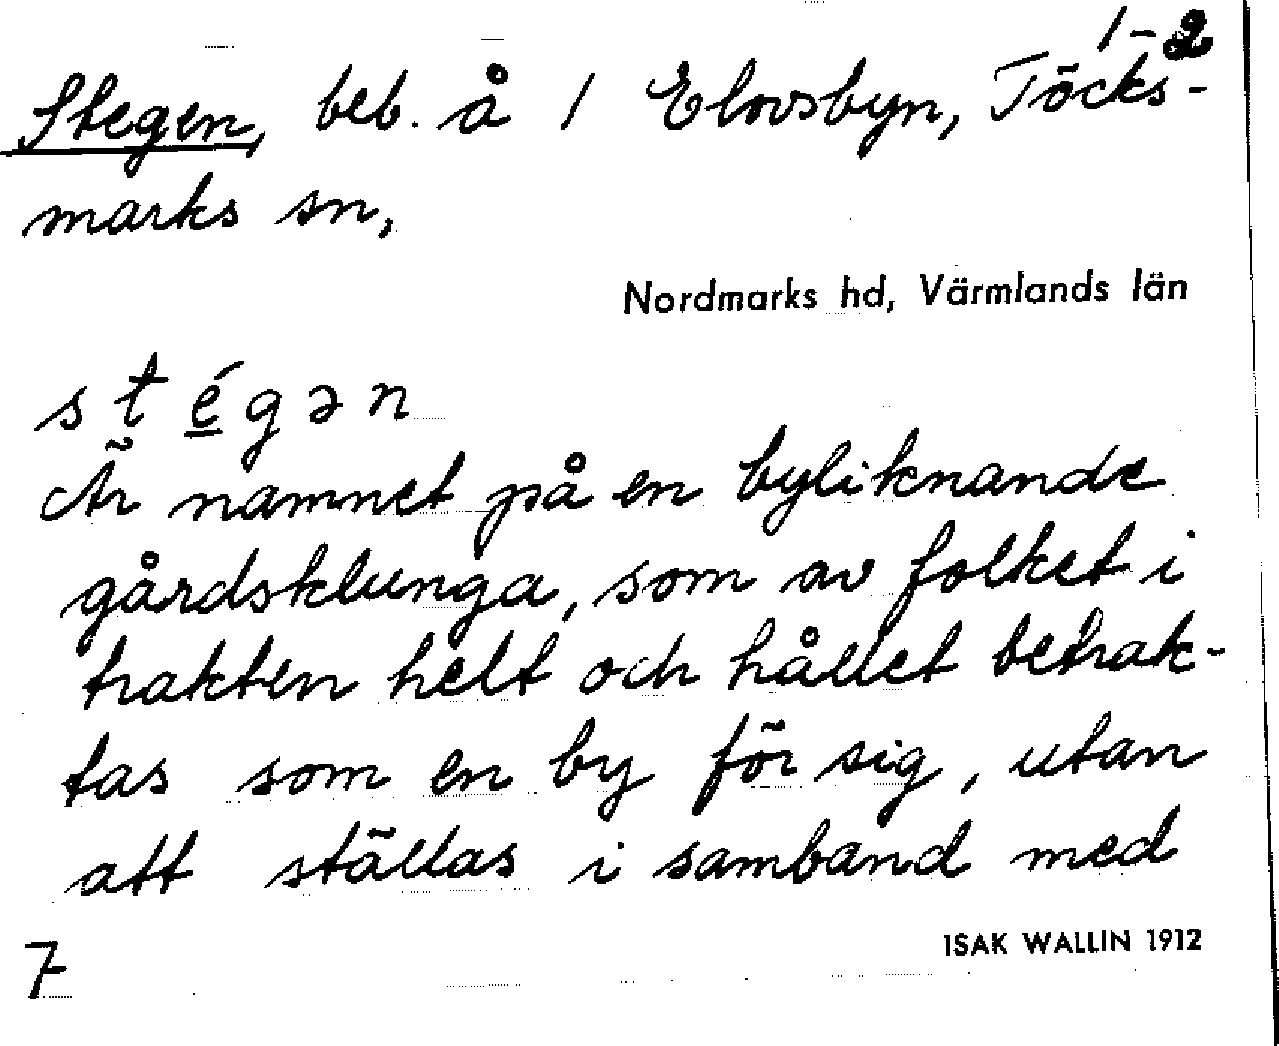 1-2
Stegen, beb. å 1 Elovsbyn, Töcks-
marks sn,
Nordmarks hd, Värmlands län
s t é g ə n
Är namnet på en byliknande
gårdsklunga, som av folket i
trakten helt och hållet betrak-
tas som en by för sig, utan
att ställas i samband med
ISAK WALLIN 1912
7